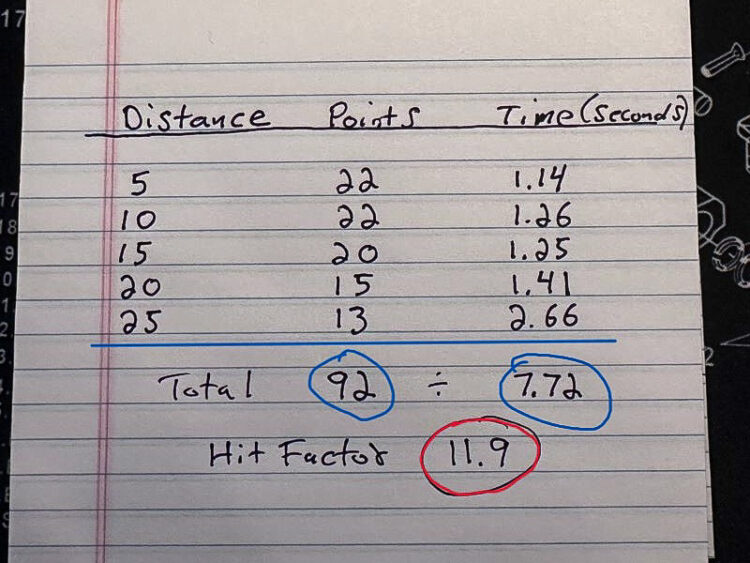 Distance Points Time (Seconds)
5 22 1.14
10 22 1.26
15 20 1.25
20 15 1.41
25 13 2.66
Total 92 ÷ 7.72
Hit Factor 11.9